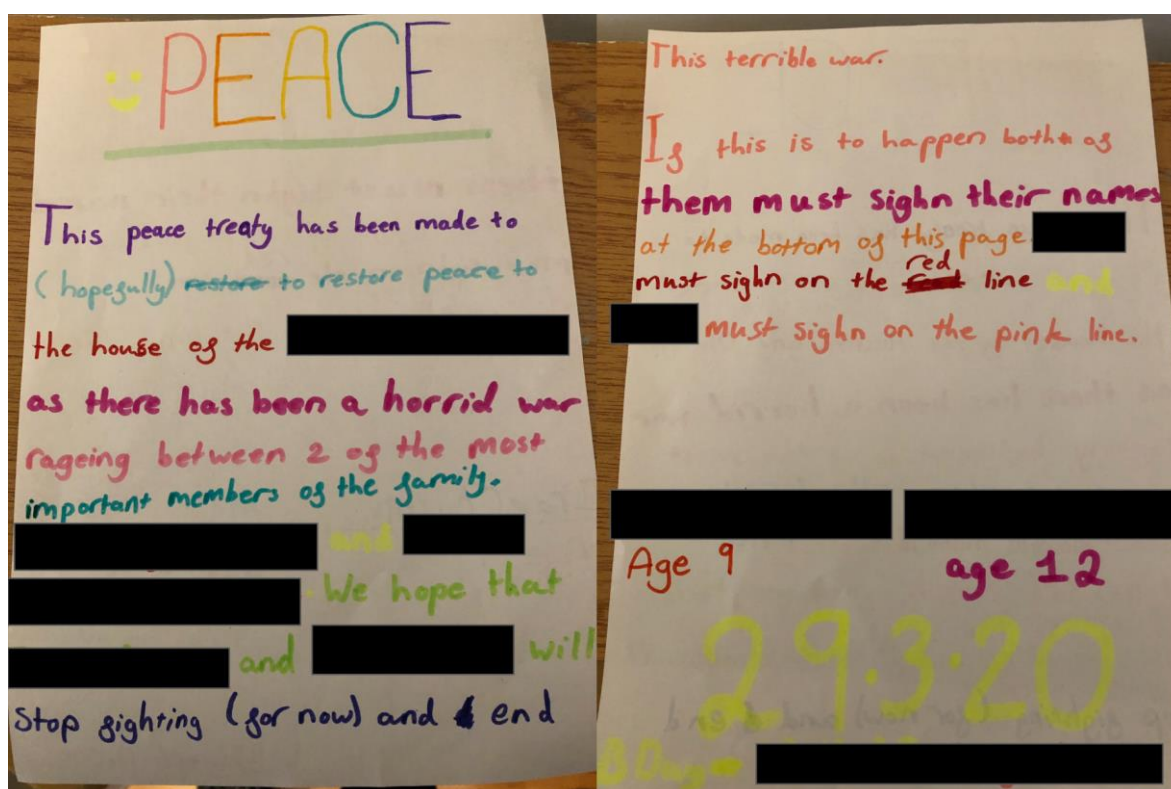 PEACE
This peace treaty has been made to
(hopefully) restore to restore peace to
the house of the
as there has been a horrid war
rageing between 2 of the most
important members of the family.
and
. We hope that
and will
Stop fighting (for now) and end
This terrible war.
If this is to happen both of
them must sighn their names
at the bottom of this page.
must sighn on the red line and
must sighn on the pink line.
Age 9 age 12
29.3.20
B.Day